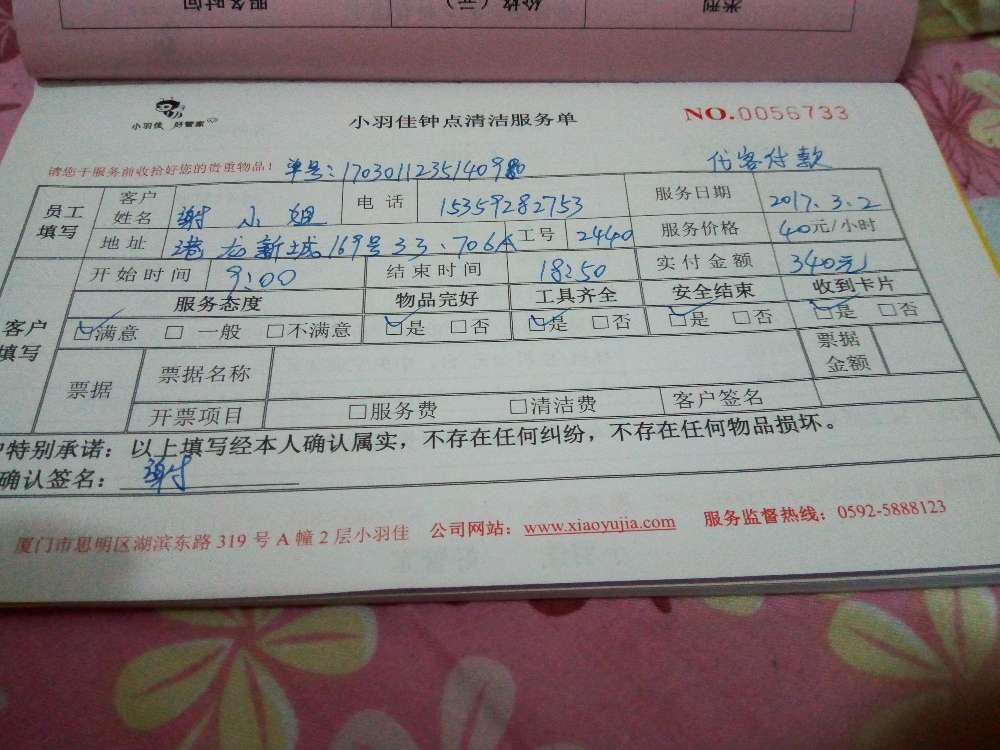 服务时间 价格（元） 类型
小羽佳 好管家
小羽佳钟点清洁服务单
NO.0056733
请您于服务前收拾好您的贵重物品！ 单号：17030112351409 代客付款
员工填写 客户姓名 谢小姐 电话 15359282753 服务日期 2017.3.2
地址 港龙新城169号33.706A 工号 2440 服务价格 40元/小时
客户填写 开始时间 9:00 结束时间 18:50 实付金额 340元
服务态度 物品完好 工具齐全 安全结束 收到卡片
☑满意 □一般 □不满意 ☑是 □否 ☑是 □否 ☑是 □否 ☑是 □否
票据 票据名称 票据金额
开票项目 □服务费 □清洁费 客户签名
特别承诺：以上填写经本人确认属实，不存在任何纠纷，不存在任何物品损坏。
确认签名：谢
厦门市思明区湖滨东路 319 号 A 幢 2 层小羽佳 公司网站：www.xiaoyujia.com 服务监督热线：0592-5888123